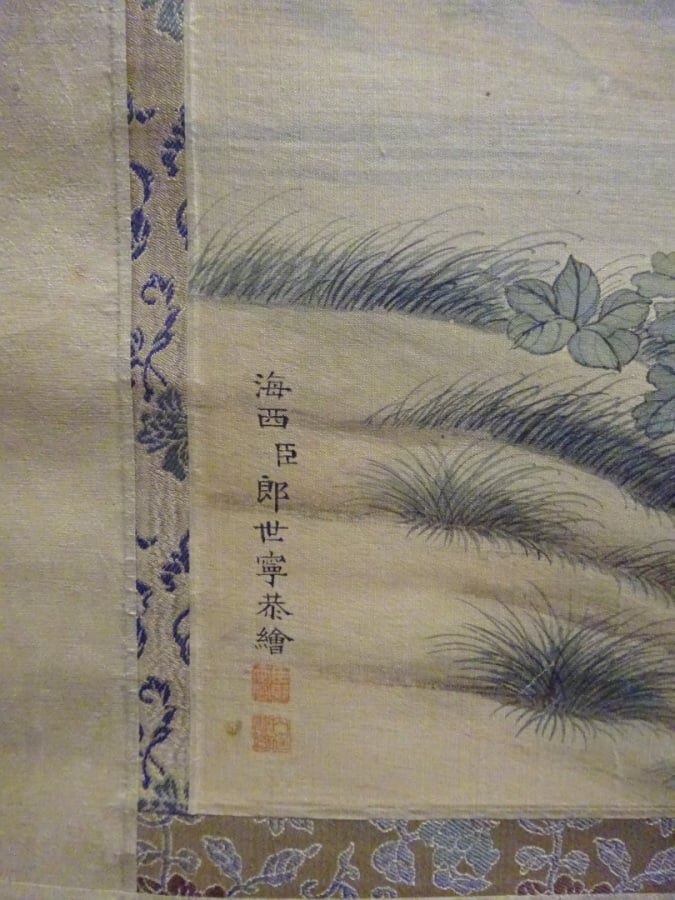 海西臣郎世寧恭繪